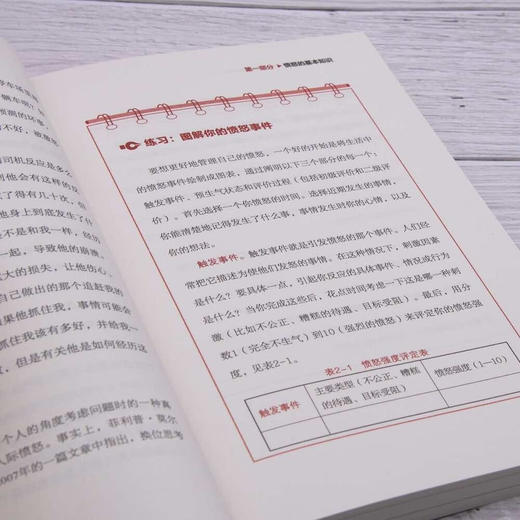 停车场里
辆车呢？
预测的环
不好，被激
司机反应是多么
到他会有这样的反
了得有几十次，但
他身上到底发生了什
不是和我一样，经历
一起，导致他的崩溃
大的损失，让他伤心
自己做出的那个追赶我的
果他抓住我，事情可能会
抓住我该有多好，并给我一
，但是有关他是如何经历这
个人的角度考虑问题时的一种真
人际愤怒。事实上，菲利普·莫尔
2007年的一篇文章中指出，换位思考
第一部分 ▶ 愤怒的基本知识
练习：图解你的愤怒事件
要想更好地管理自己的愤怒，一个好的开始是将生活中
的愤怒事件绘制成图表，通过阐明以下三个部分的每一个：
触发事件、预生气状态和评价过程（包括初级评价和二级评
价）。首先选择一个你愤怒的时间。选择近期发生的事情，
你能清楚地记得发生了什么事，事情发生时你的心情，以及
你的想法。
触发事件。触发事件就是引发愤怒的那个事件，人们经
常把它描述为使他们发怒的事情。在这种情况下，刺激因素
是什么？要具体一点，引起你反应的具体事件、情况或行为
是什么？当你完成这些后，花点时间考虑一下这是哪一种刺
激（比如不公正、糟糕的待遇、目标受阻）。最后，用分
数1（完全不生气）到10（强烈的愤怒）来评定你的愤怒强
度，见表2-1。
表2-1 愤怒强度评定表
触发事件 主要类型（不公正、糟糕 愤怒强度（1—10）
的待遇、目标受阻）